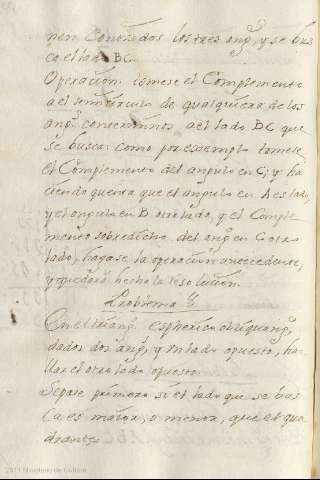 nen Conosidos los tres angs, y se bus
ca el lado BC.
Operacion. tomese el Complemento
a el semicirculo de qualquiera de los
angs conterminos a el lado BC que
se busca: como por exemplo tomese
el Complemento del angulo en C; y ha
ciendo quenta que el angulo en A es lado,
y el angulo en B otro lado, y el Comple
mento sobredicho del ango en C otro
lado, hagase la operacion antecedente,
y quedará hecha la resolucion.
Problema
En el triango espherico obliquango,
dados dos angs, y un lado opuesto, ha
llar el otro lado opuesto.
Sepase primero si el lado que se bus
ca es maior, o menor, que el qua
drante,
2011 Ministerio de Cultura